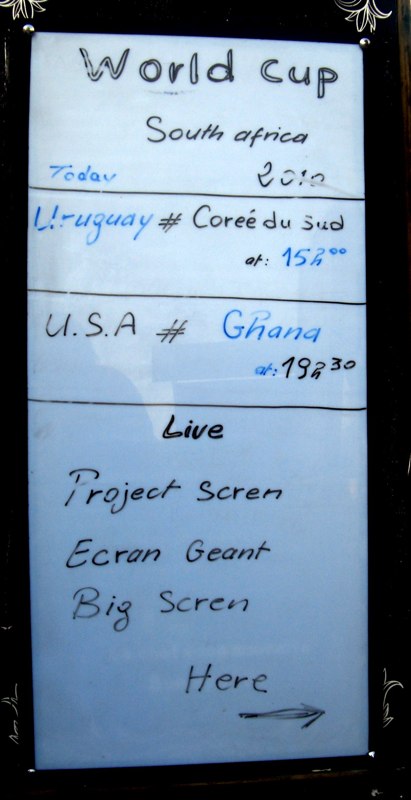 World Cup
South africa
Today 2010
Uruguay # Coreé du Sud
at: 15h00
U.S.A # Ghana
at: 19h30
Live
Project Scren
Ecran Geant
Big Scren
Here